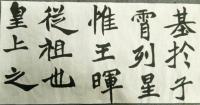 基於子
霄列星
惟王暉
從祖也
皇上之